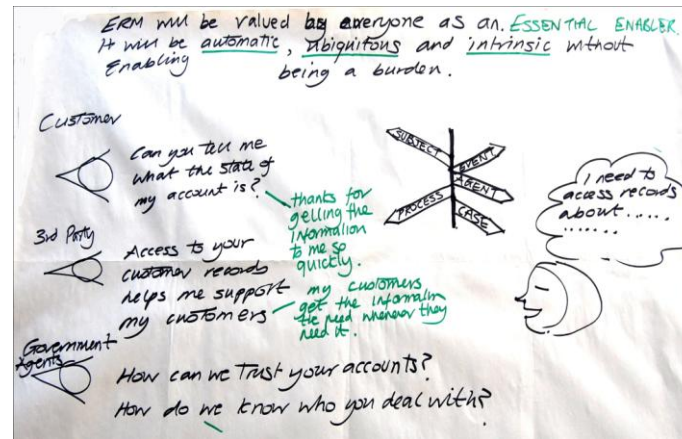 ERM will be valued by everyone as an ESSENTIAL ENABLER.
It will be automatic, ubiquitous and intrinsic without
Enabling being a burden.
Customer
Can you tell me
what the state of
my account is?
thanks for
getting the
information
to me so
quickly.
3rd Party
Access to your
customer records
helps me support
my customers
my customers
get the information
the need whenever they
need it.
Government
Agents
How can we Trust your accounts?
How do we know who you deal with?
SUBJECT
EVENT
AGENT
PROCESS
CASE
I need to
access records
about.....
.......